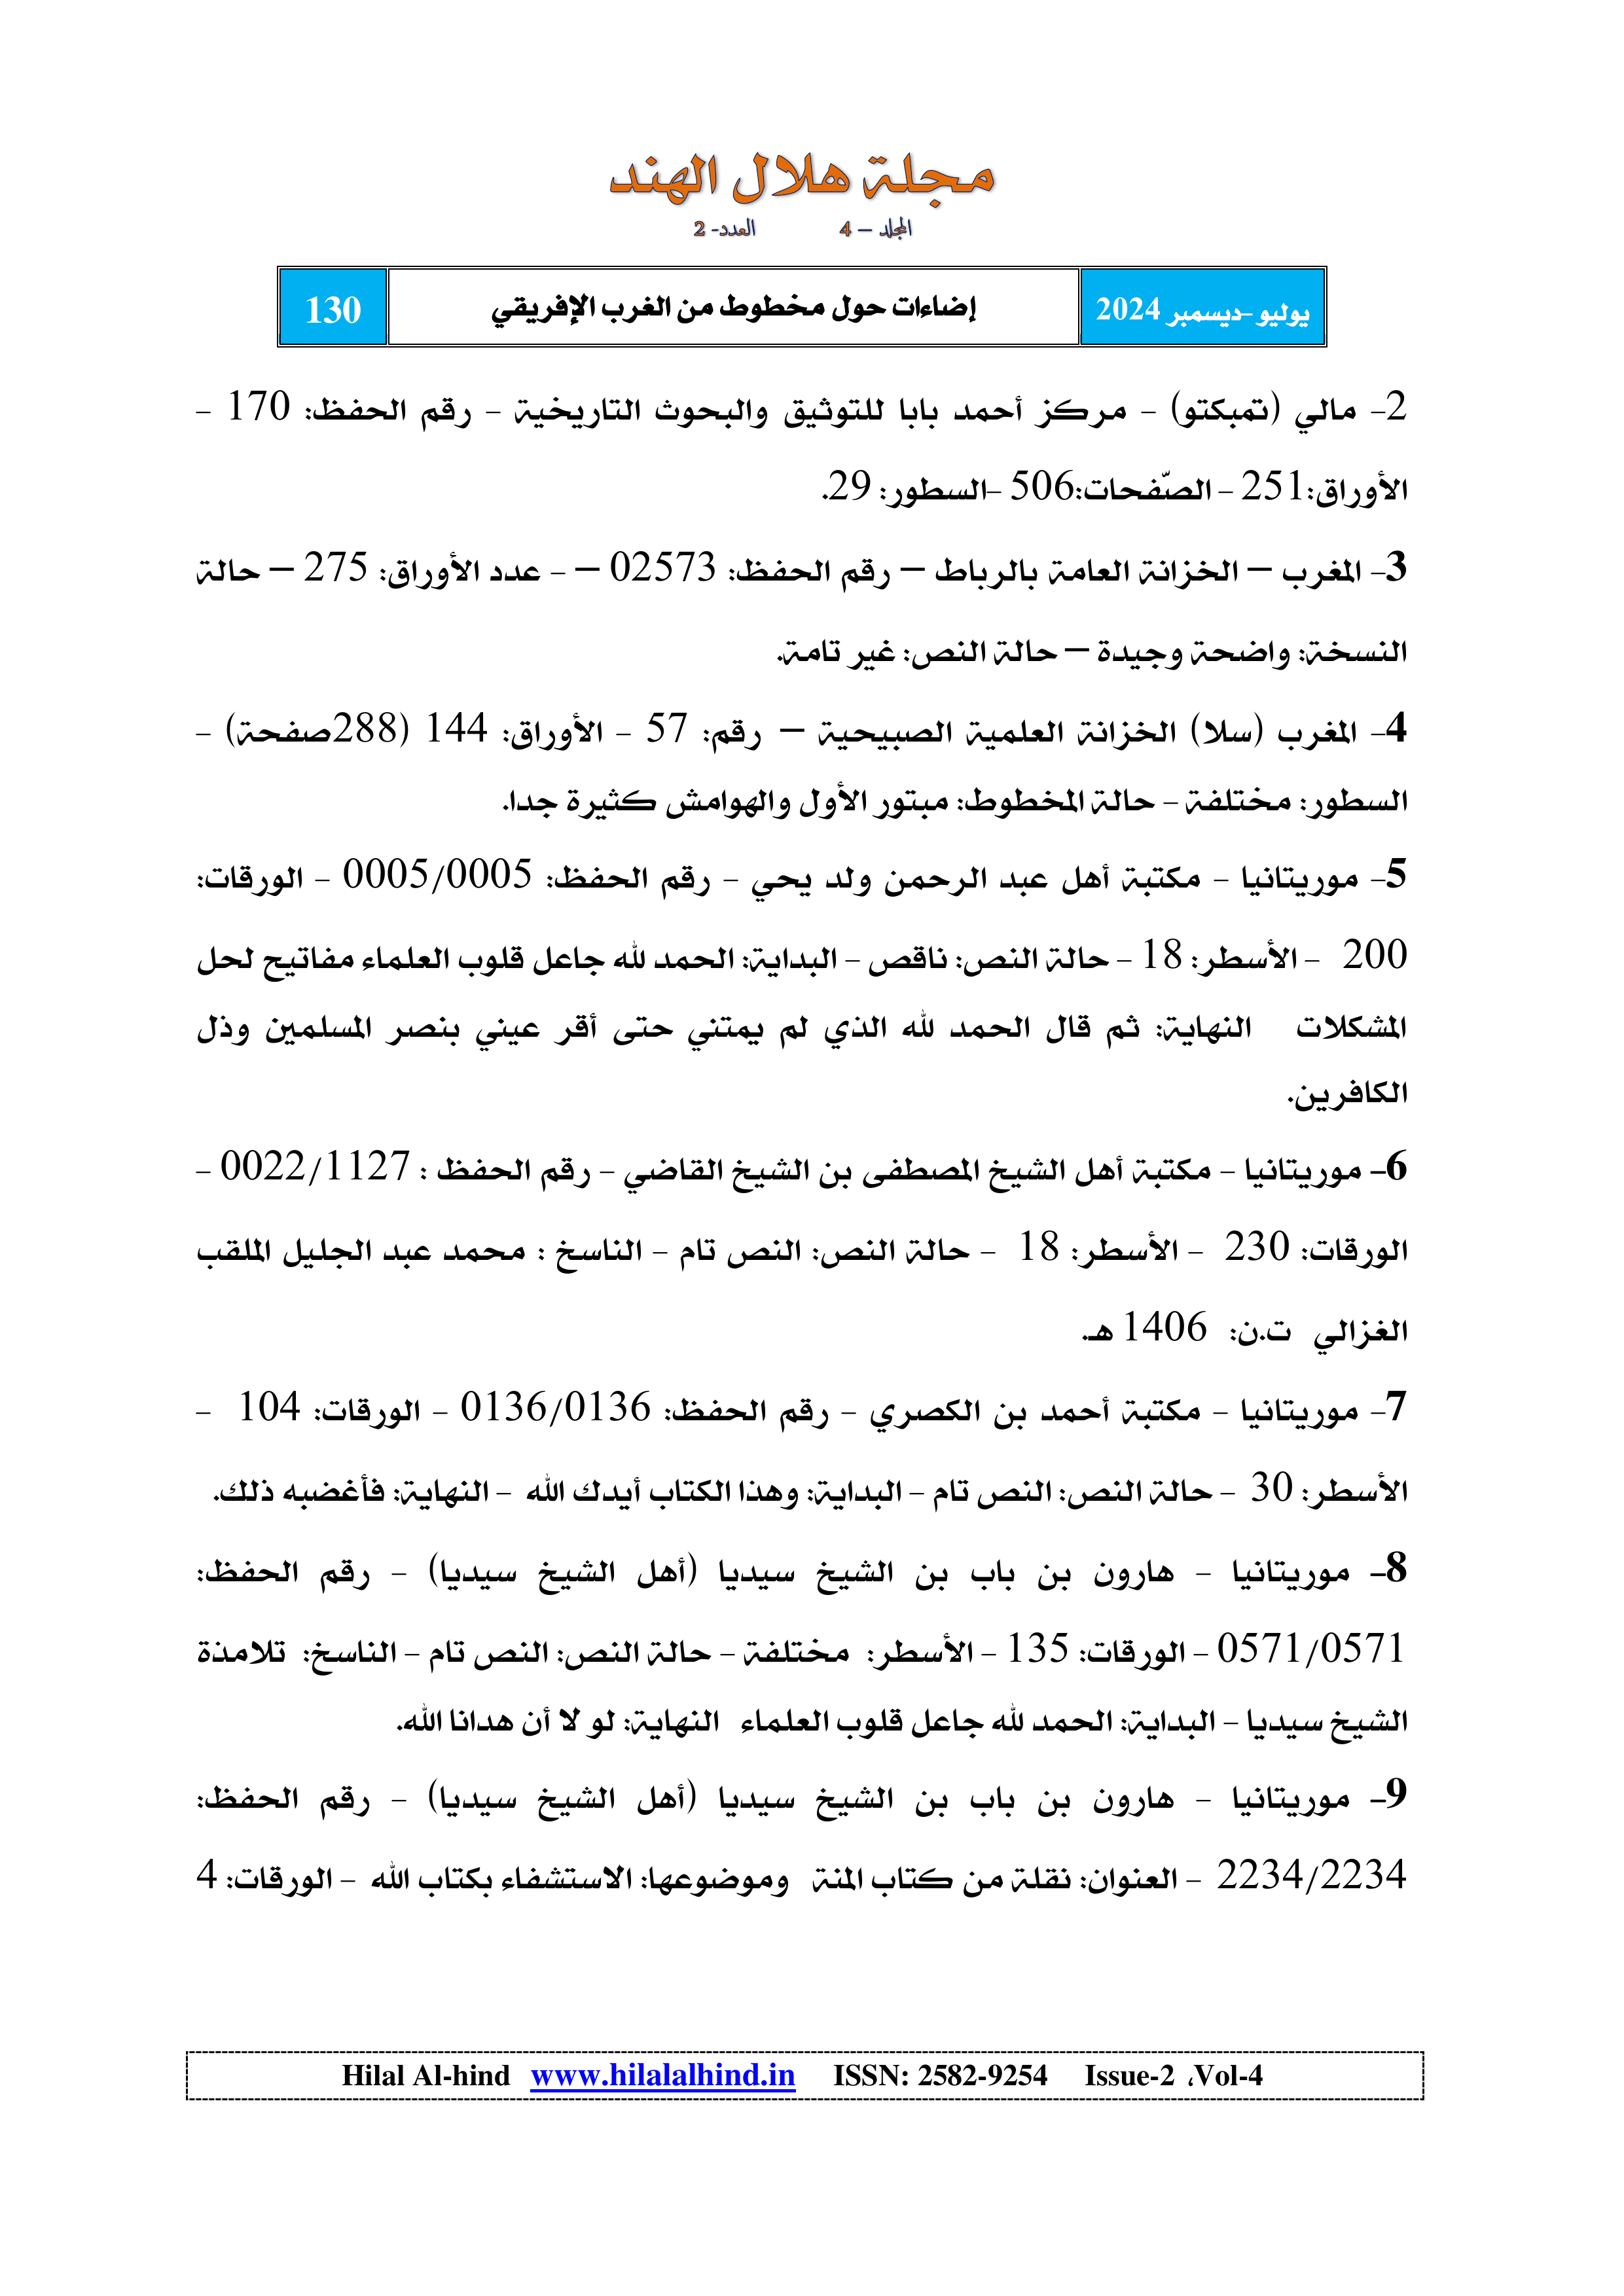 مجلة هلال الهند
المجلد – 4 العدد- 2
يوليو –ديسمبر 2024 إضاءات حول مخطوط من الغرب الإفريقي 130
2- مالي (تمبكتو) – مركز أحمد بابا للتوثيق والبحوث التاريخية – رقم الحفظ: 170 –
الأوراق:251 – الصّفحات:506 –السطور: 29.
3- المغرب – الخزانة العامة بالرباط – رقم الحفظ: 02573 – – عدد الأوراق: 275 – حالة
النسخة: واضحة وجيدة – حالة النص: غير تامة.
4- المغرب (سلا) الخزانة العلمية الصبيحية – رقم: 57 – الأوراق: 144 (288صفحة) –
السطور: مختلفة – حالة المخطوط: مبتور الأول والهوامش كثيرة جدا.
5- موريتانيا – مكتبة أهل عبد الرحمن ولد يحي – رقم الحفظ: 0005/0005 – الورقات:
200 – الأسطر: 18 – حالة النص: ناقص – البداية: الحمد لله جاعل قلوب العلماء مفاتيح لحل
المشكلات النهاية: ثم قال الحمد لله الذي لم يمتني حتى أقر عيني بنصر المسلمين وذل
الكافرين.
6- موريتانيا – مكتبة أهل الشيخ المصطفى بن الشيخ القاضي – رقم الحفظ : 0022/1127 –
الورقات: 230 – الأسطر: 18 – حالة النص: النص تام – الناسخ : محمد عبد الجليل الملقب
الغزالي ت.ن: 1406 هـ.
7- موريتانيا – مكتبة أحمد بن الكصري – رقم الحفظ: 0136/0136 – الورقات: 104 –
الأسطر: 30 – حالة النص: النص تام – البداية: وهذا الكتاب أيدك الله – النهاية: فأغضبه ذلك.
8- موريتانيا – هارون بن باب بن الشيخ سيديا (أهل الشيخ سيديا) – رقم الحفظ:
0571/0571 – الورقات: 135 – الأسطر: مختلفة – حالة النص: النص تام – الناسخ: تلامذة
الشيخ سيديا – البداية: الحمد لله جاعل قلوب العلماء النهاية: لو لا أن هدانا الله.
9- موريتانيا – هارون بن باب بن الشيخ سيديا (أهل الشيخ سيديا) – رقم الحفظ:
2234/2234 – العنوان: نقلة من كتاب المنة وموضوعها: الاستشفاء بكتاب الله – الورقات: 4
Hilal Al-hind www.hilalalhind.in ISSN: 2582-9254 Issue-2 ،Vol-4